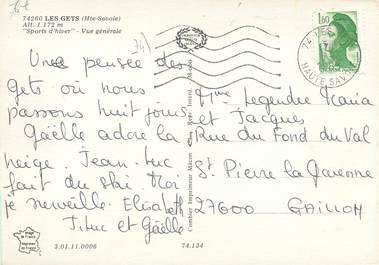 74260 LES GETS (Hte-Savoie)
Alt. 1.172 m
"Sports d'hiver" - Vue générale
Une pensée des
Gets où nous
passons huit jours
Gaëlle adore la
neige. Jean-Luc
fait du ski. Moi
je surveille. Elisabeth
Jiluc et Gaëlle
3.01.11.0006
74.134
Combier Imprimeur Mâcon
1,60
74 LES
HAUTE SAV
Mme Legendre
et Jacques
Rue du Fond du Val
St. Pierre la Garenne
27600 GAILLON